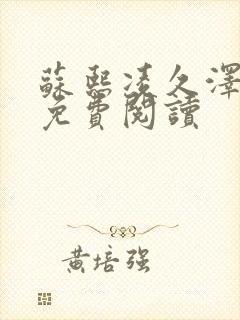 蘇熙凌久澤
免費閱讀
黃培強